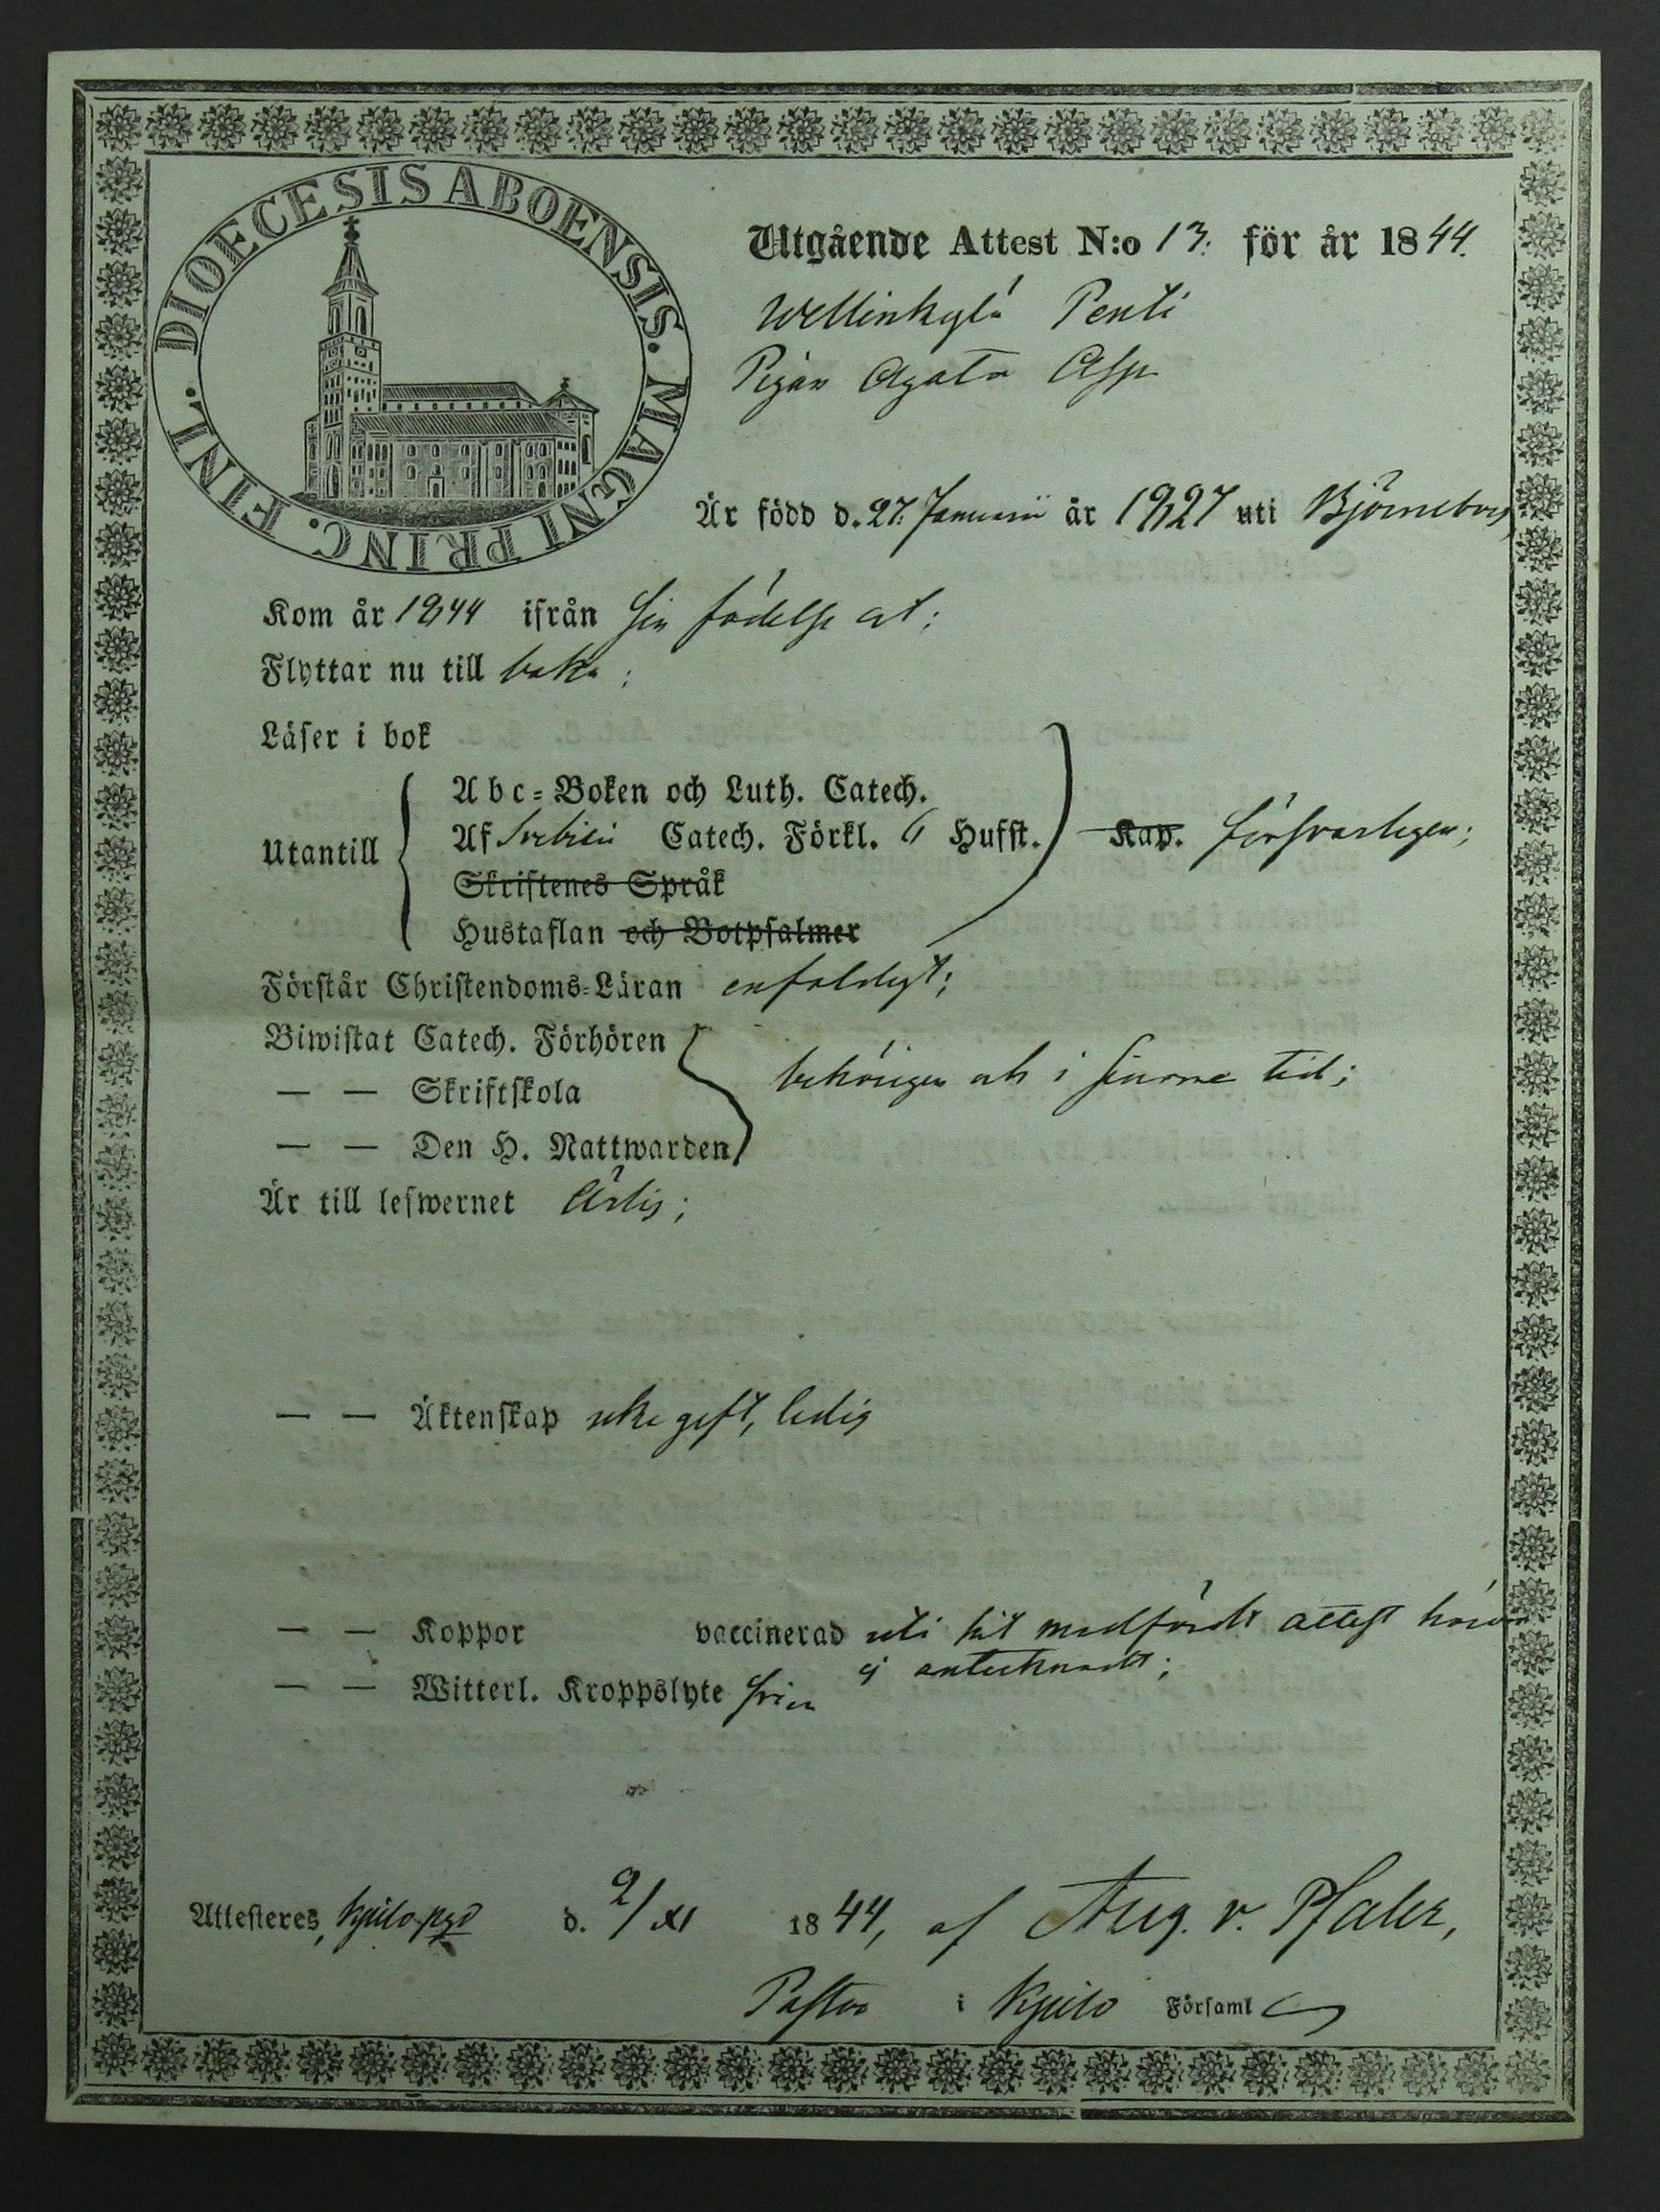 DIOECESIS ABOENSIS. MAGNI PRINC. FINL.
Utgående Attest N:o 13. för år 1844.
Wellinkylä Penti
Pigan Agata Asp
Är född d. 27. Januarii år 1827 uti Björneborg
Kom år 1844 ifrån sin födelse ort;
Flyttar nu till baka;
Läser i bok
Utantill
Abc=Boken och Luth. Catech.
Af Svebilii Catech. Förkl. 6 Hufst. Kap. försvarligen;
Skriftenes Språk
Hustaflan och Botpsalmer
Förstår Christendoms=Läran enfaldigt;
Biwistat Catech. Förhören
— — Skriftskola behörigen och i sinom tid;
— — Den H. Nattwarden
Är till lefwernet Ärlig;
— — Äktenskap icke gift, ledig
— — Koppor vaccinerad uti hit medfördt attest
ej antecknadt;
— — Witterl. Kroppslyte fri
Attesteres, Kjulo pgd d. 2/XI 1844, af Aug. v. Pfaler,
Pastor i Kjulo Församl